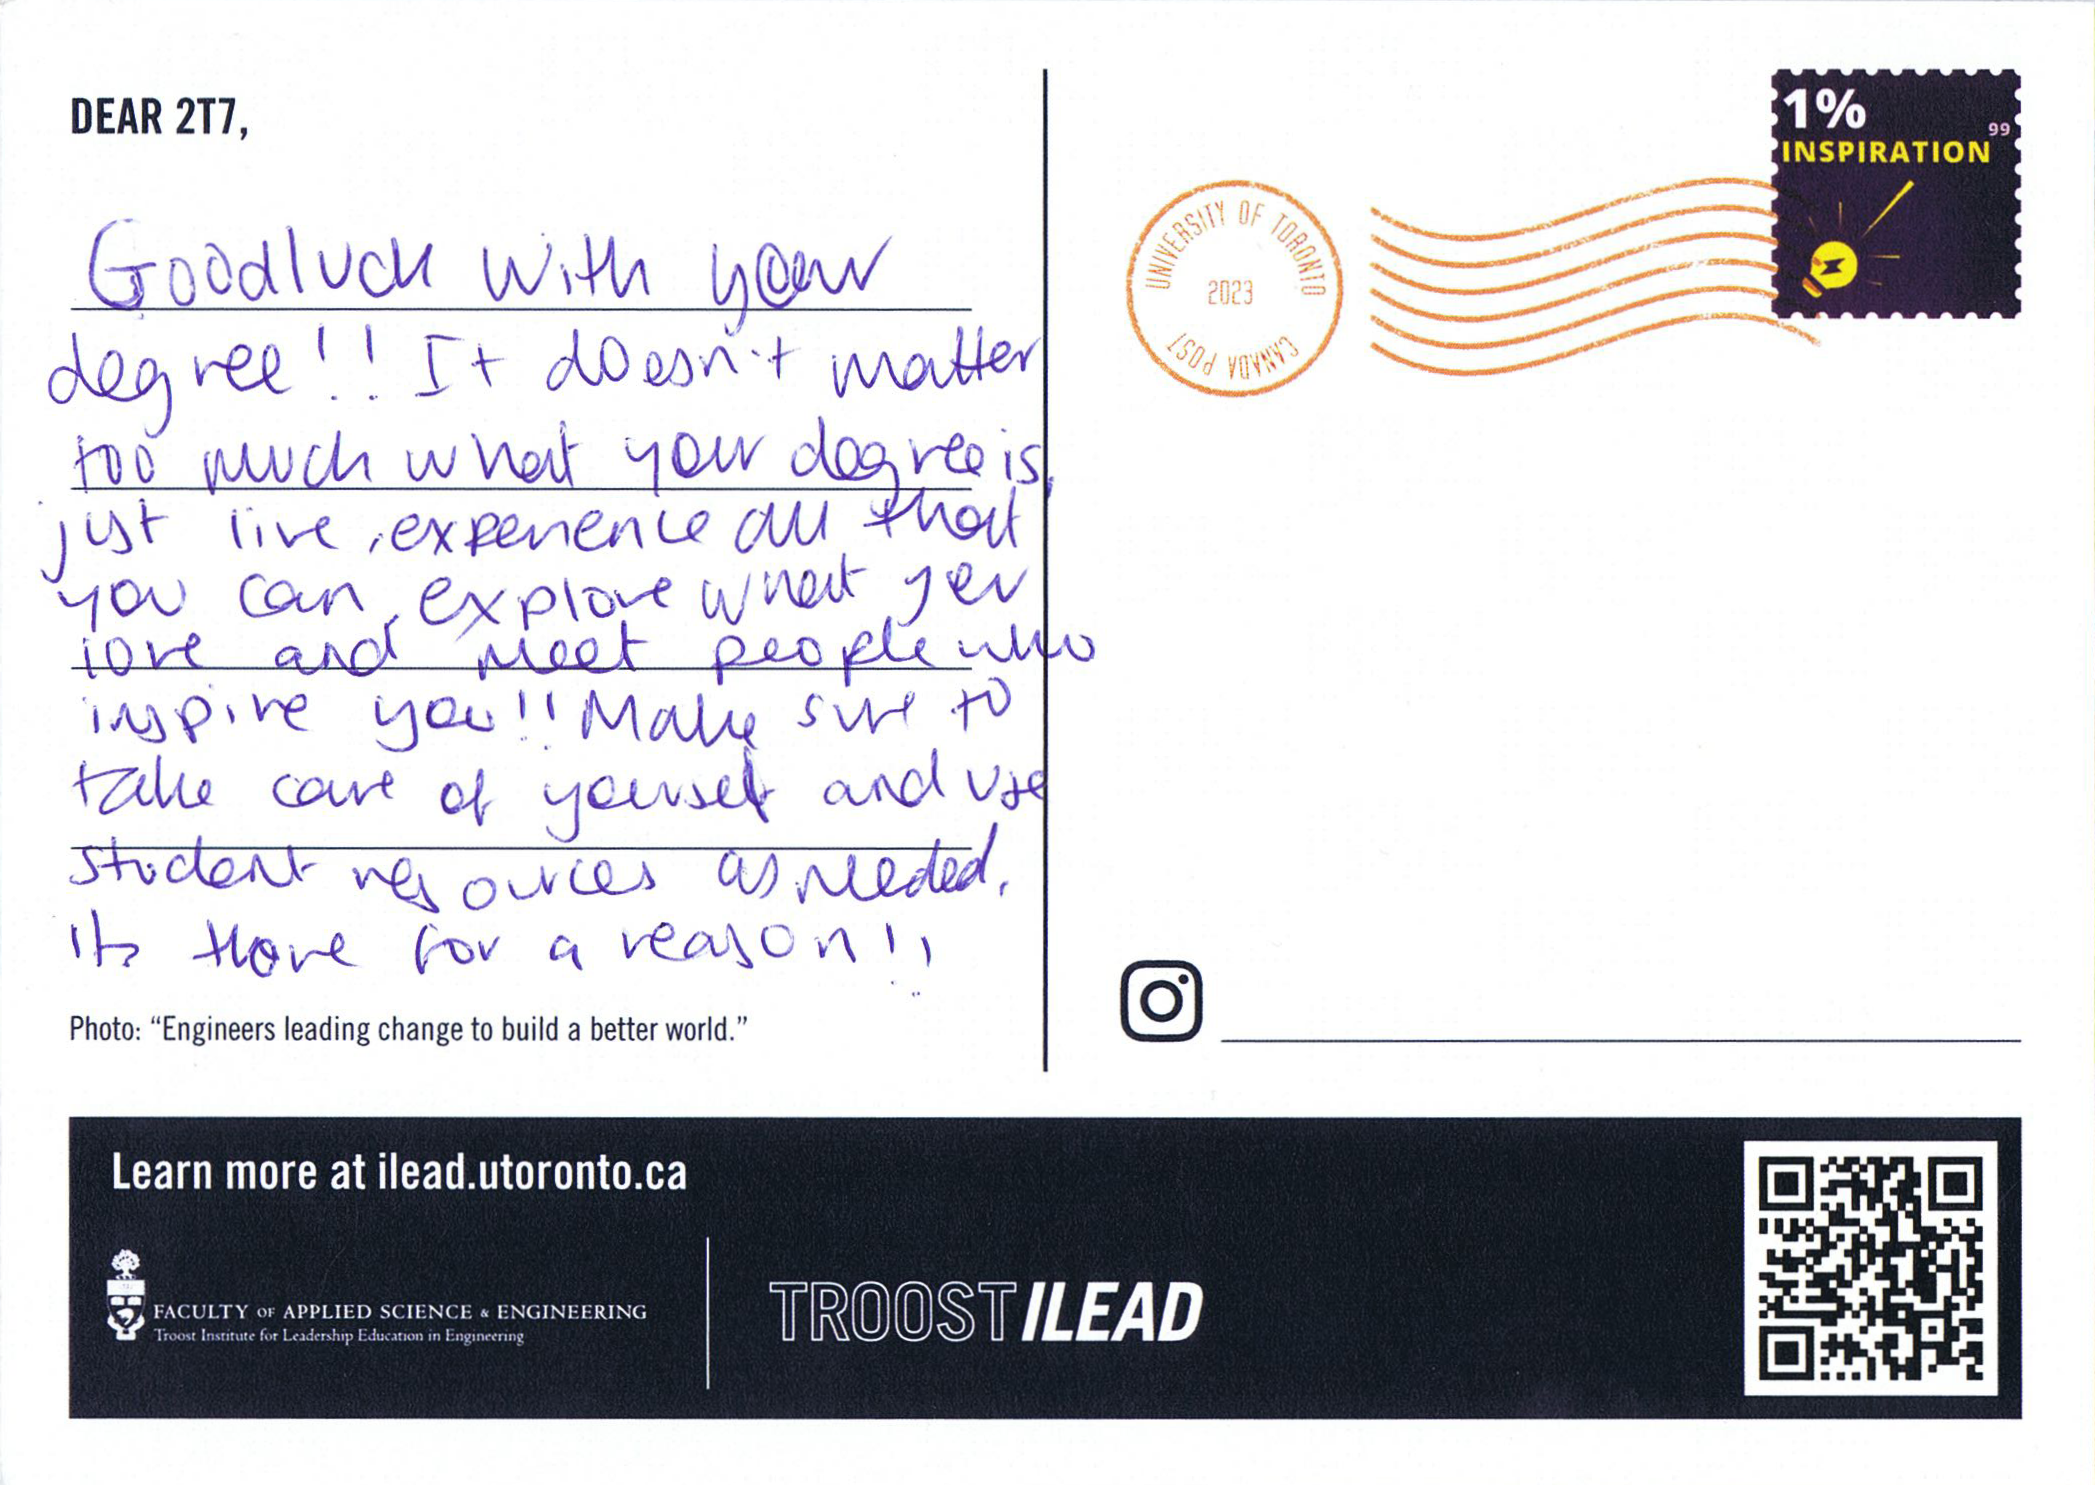 DEAR 2T7,
Goodluck with your
degree!! It doesn't matter
too much what your degree is,
just live, experience all that
you can, explore what you
love and meet people who
inspire you!! Make sure to
take care of yourself and use
student resources as needed,
its there for a reason!!
Photo: “Engineers leading change to build a better world.”
1%
99
INSPIRATION
UNIVERSITY OF TORONTO
2023
CANADA POST
Learn more at ilead.utoronto.ca
FACULTY OF APPLIED SCIENCE & ENGINEERING
Troost Institute for Leadership Education in Engineering
TROOST ILEAD